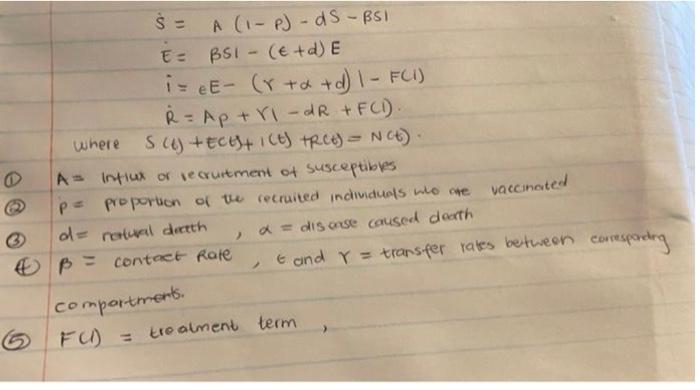 Ṡ = A (1-p) - dS - βSI
Ė = βSI - (ϵ+d) E
İ = eE- (γ +α +d) I - F(I)
Ṙ = Ap + γI - dR + F(I).
where S(t) + E(t) + I(t) + R(t) = N(t).
① A = Influx or recruitment of susceptibles
② p = proportion of the recruited individuals who are vaccinated
③ d = natural death , α = disease caused death
④ β = contact Rate , ϵ and γ = transfer rates between corresponding
compartments.
⑤ F(I) = treatment term ,